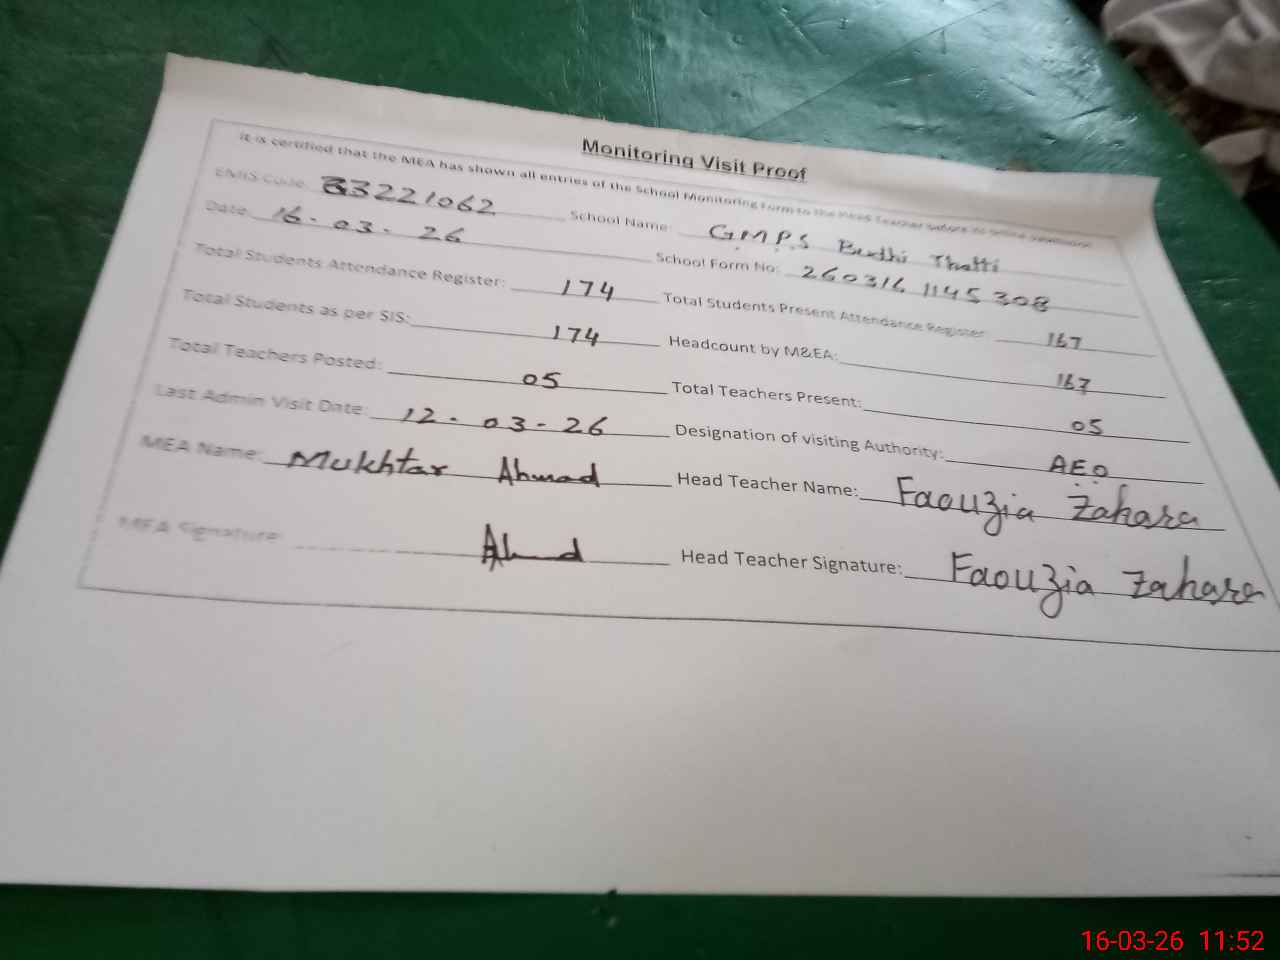 Monitoring Visit Proof
It is certified that the MEA has shown all entries of the School Monitoring Form to the Head Teacher before its online submission
EMIS Code: 33221062 School Name: G.M.P.S Budhi Thatti
Date: 16-03-26 School Form No: 260316 1145 308
Total Students Attendance Register: 174 Total Students Present Attendance Register: 167
Total Students as per SIS: 174 Headcount by M&EA: 167
Total Teachers Posted: 05 Total Teachers Present: 05
Last Admin Visit Date: 12-03-26 Designation of visiting Authority: A.E.O
MEA Name: Mukhtar Ahmad Head Teacher Name: Faouzia Zahara
MEA Signature: Ahmd Head Teacher Signature: Faouzia Zahara
16-03-26 11:52